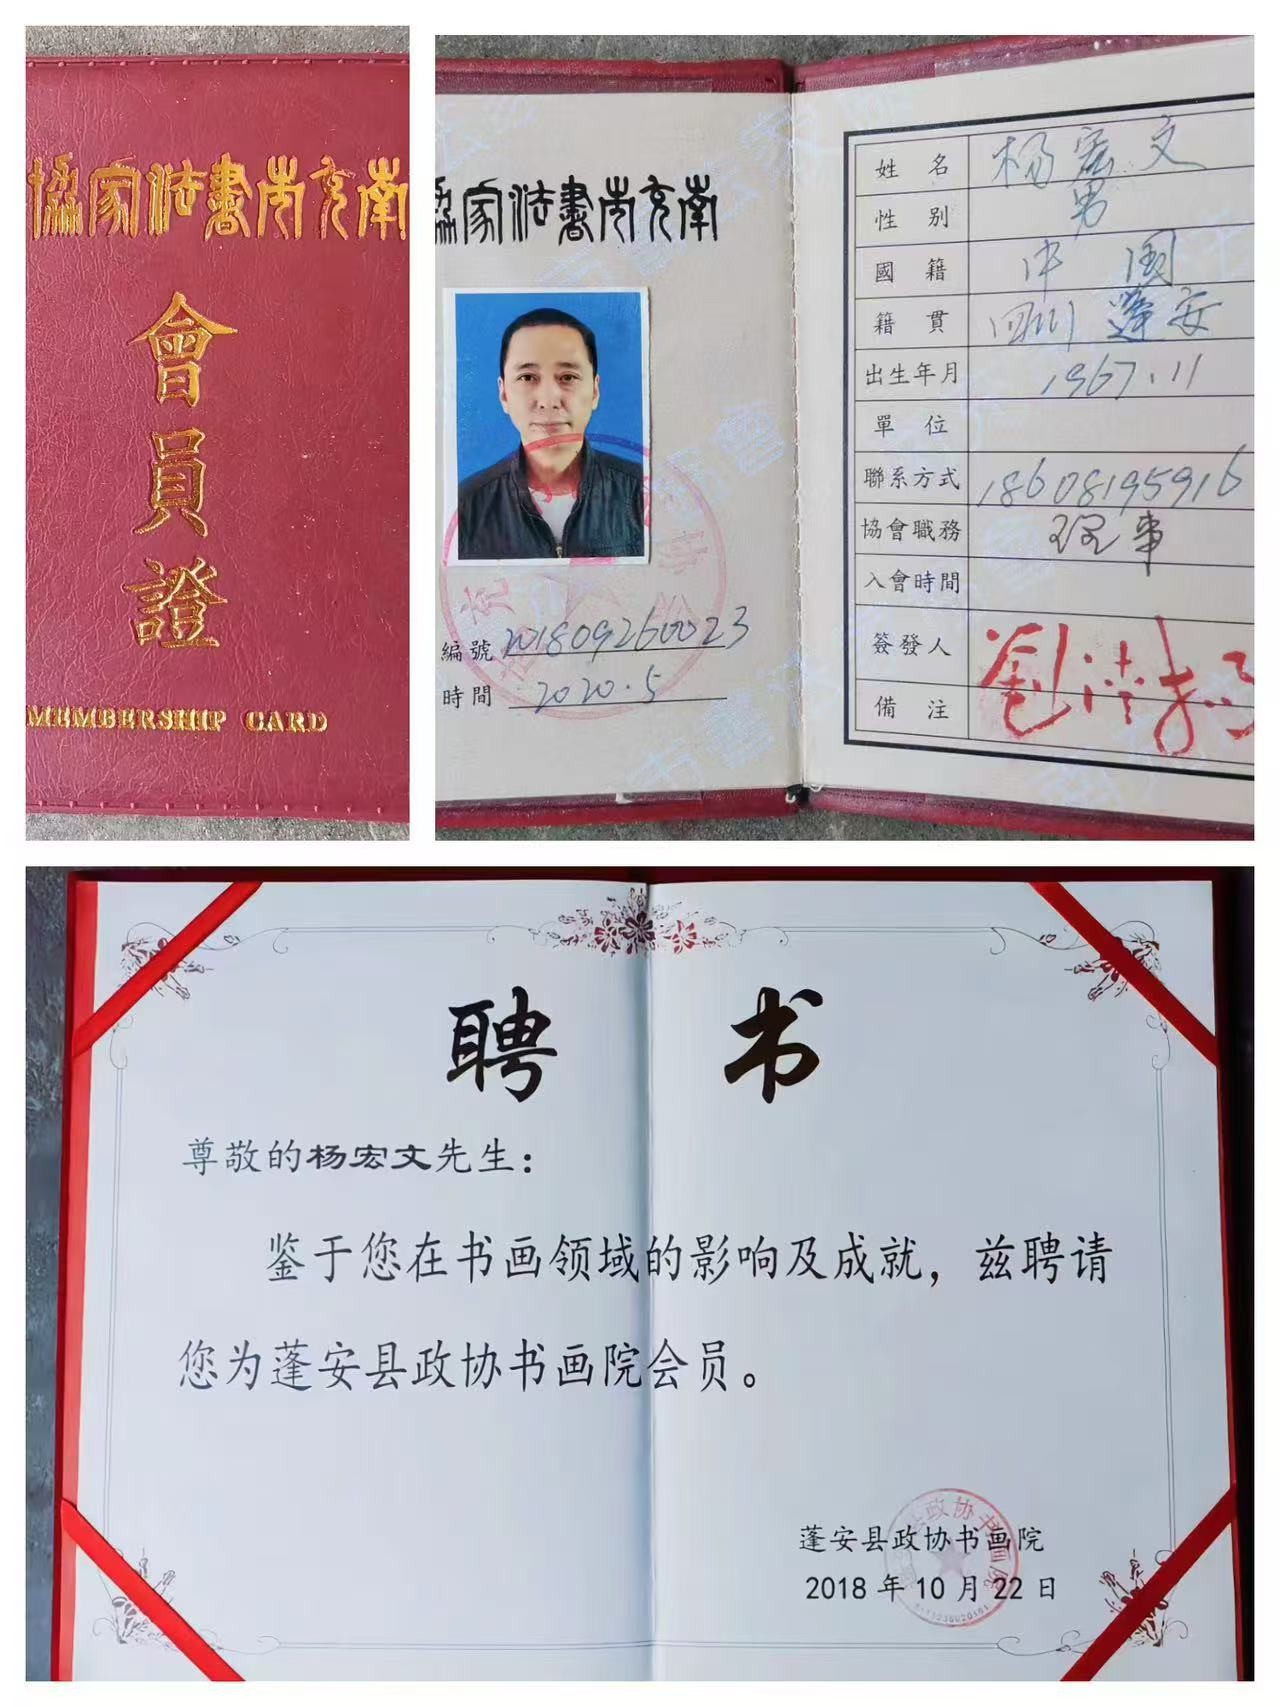 南充市書法家協
會
員
證
MEMBERSHIP CARD
南充市書法家協
編號 201809260023
時間 2020.5
姓名 杨宏文
性别 男
國籍 中国
籍貫 四川蓬安
出生年月 1967.11
單位
聯系方式 18608195916
協會職務 理事
入會時間
簽發人
備注
聘书
尊敬的杨宏文先生：
鉴于您在书画领域的影响及成就，兹聘请
您为蓬安县政协书画院会员。
蓬安县政协书画院
2018年10月22日